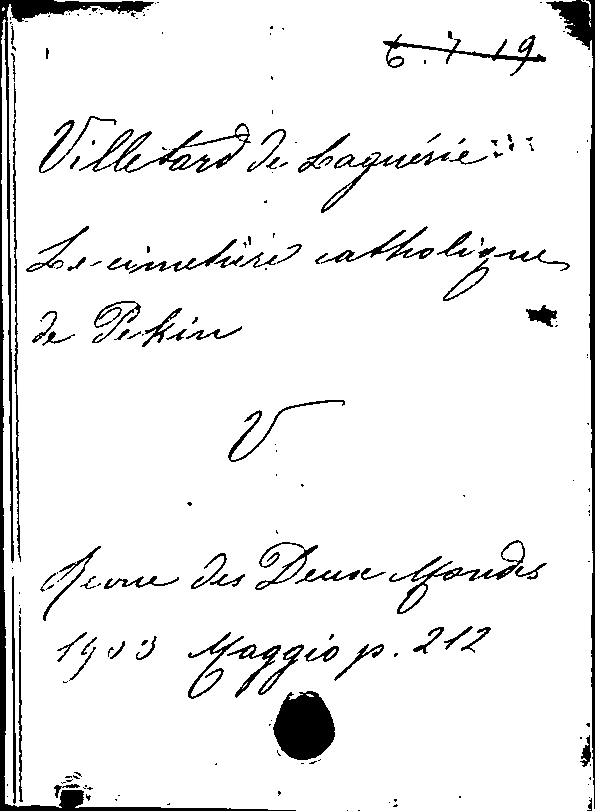 6.7.19
Villetard de Laguérie
Le cimetière catholique
de Pekin
V
Revue des Deux Mondes
1903 Maggio p. 212